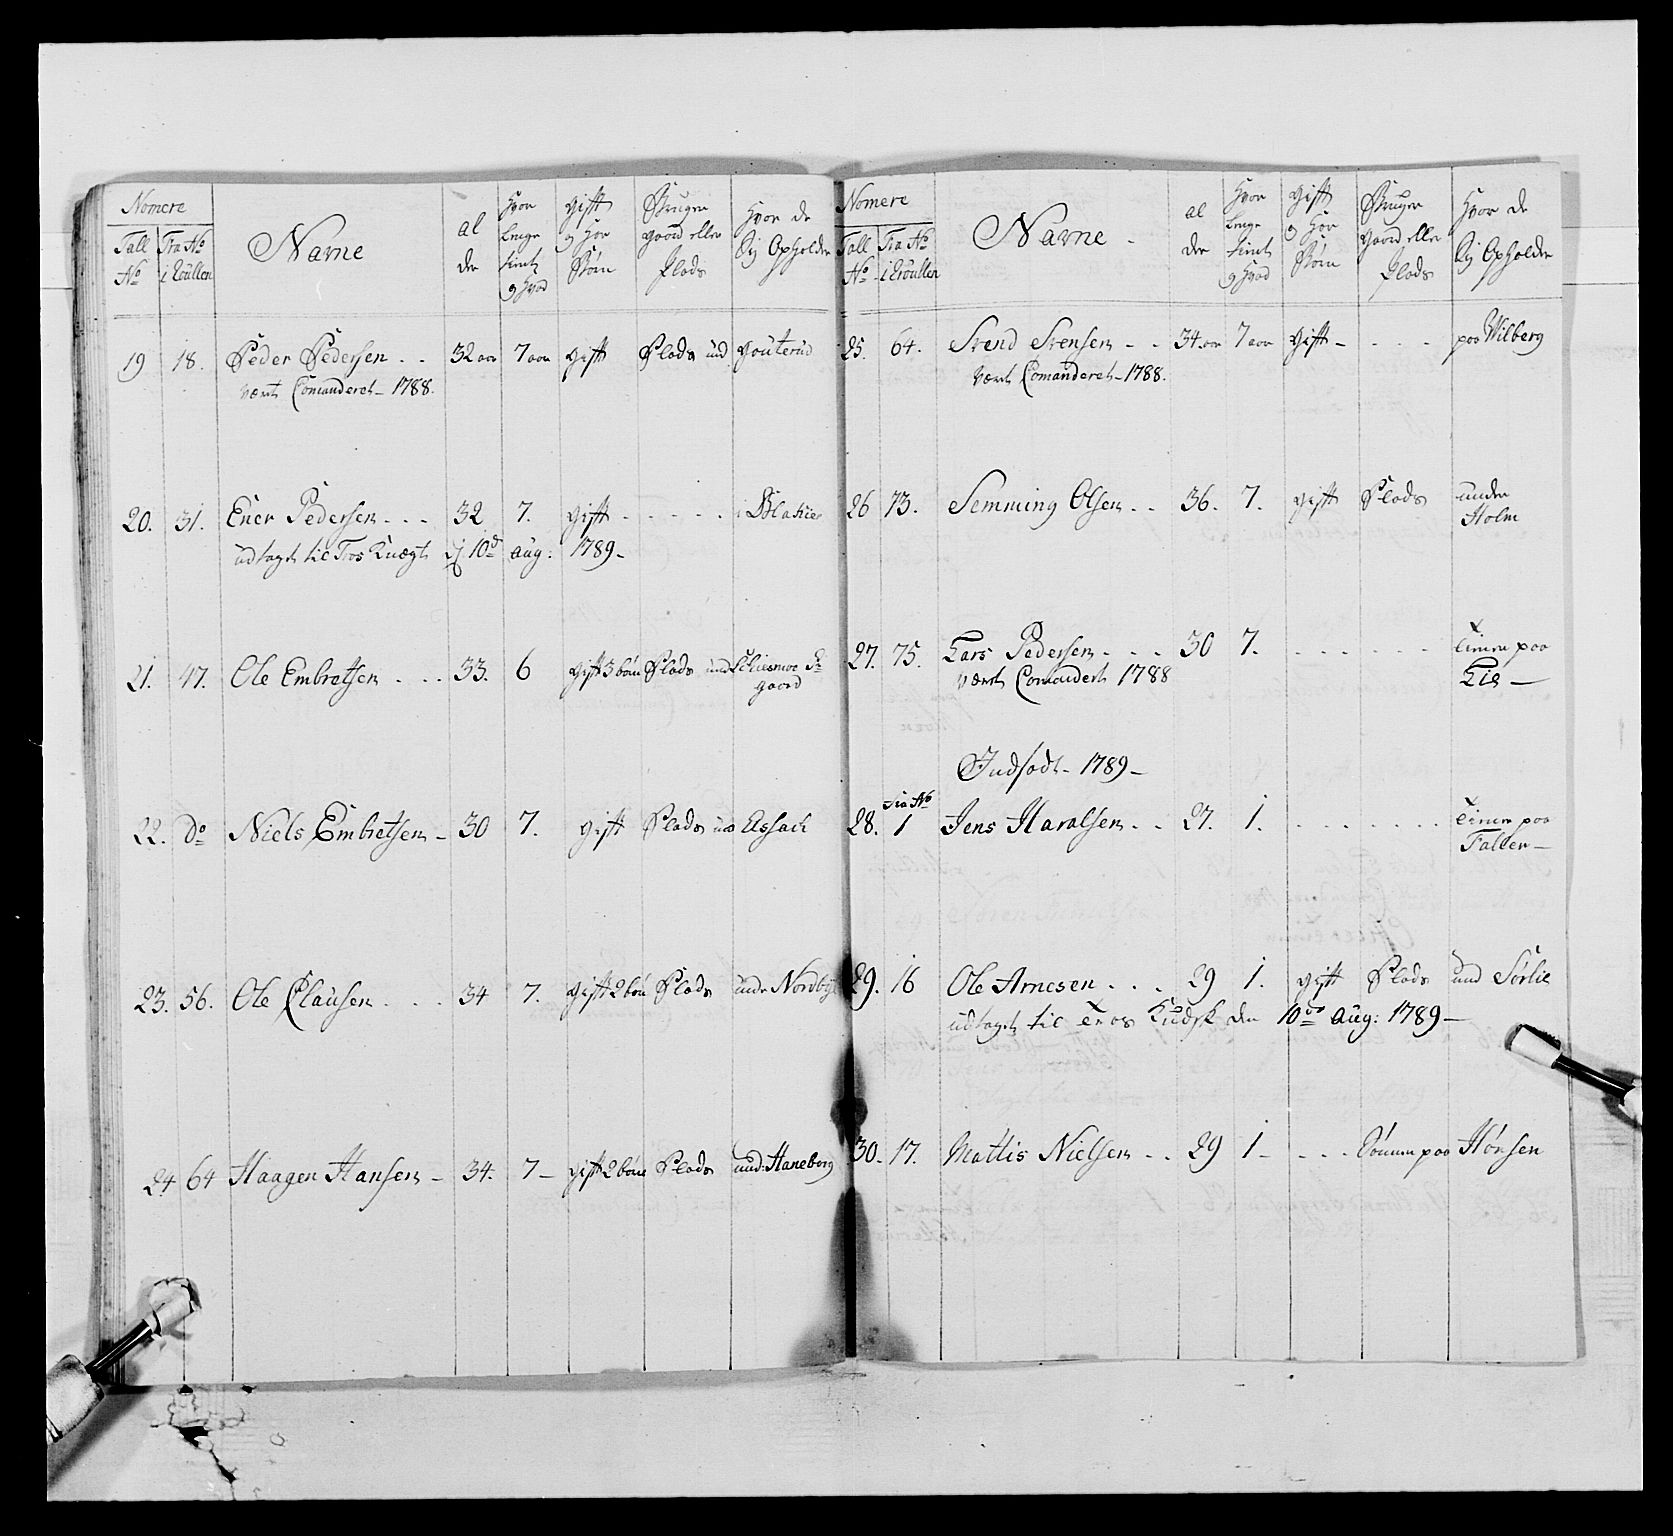 Nomere
Tall No
Fra No i Roullen
Name
al der
Hvor lenge tient og hvad
gift og hvor Børn
Bruger gaard eller Plads
Hvor de Sig Opholder
19 18. Peder Pedersen . . 32 aar 7 aar gift Plads und Gouterud
vært Comanderet - 1788.
20. 31. Ener Pedersen . . . 32 7. gift . . . . . i Blakier
udtaget til Tros Knægt d 10de aug: 1789 -
21. 47. Ole Embretsen . . . 33. 6 gift 3 børn Plads und
gaard
22. Do Niels Embretsen - 30 7. gift Plads und Assack
23. 56. Ole Clausen . . . 34 7. gift 2 børn Plads unde Nordbye
24 64 Haagen Hansen - 34. 7 - gift 2 børn Plads und: Haneborg
Nomere
Tall No
Fra No i Roullen
Name
al der
Hvor lenge tient og hvad
gift og hvor Børn
Bruger gaard eller Plads
Hvor de Sig Opholder
25. 64. Svend Svensen - - 34. aar 7 aar gift - . . . paa Wilberg
vært Comanderet - 1788.
26 73. Semming Olsen . . 36. 7. gift Plads under
Holm
27. 75. Lars Pedersen . . . 30 7. . . . . . . tiener paa
Lie -
vært Comanderet 1788
Indsadt - 1789 -
28. Fra No 1 Jens Haralsen . . 27. 1. . . . . . . tiener paa
Faller -
29. 16 Ole Arnesen . . . 29 1. gift Plads und Sørlie
udtaget til Tros Kudsk den 10de aug: 1789 -
30. 17. Mattis Nielsen . . 29 1 - . . . Sønnen paa Hønsen